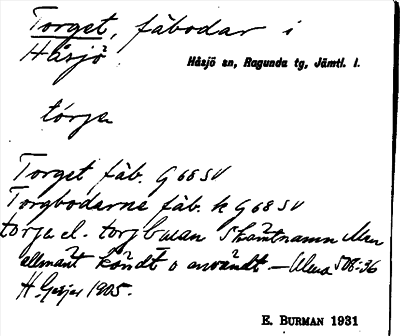 Torget, fäbodar i
Håsjö
Håsjö sn, Ragunda tg, Jämtl. l.
tórja
Torget fäb. G 68 SV
Torgbodarna fäb. k G 68 SV
torja el. torjbuan Skämtnamn Men
allmänt känt o använt — 508-36
H. Geijer 1905.
E. BURMAN 1931